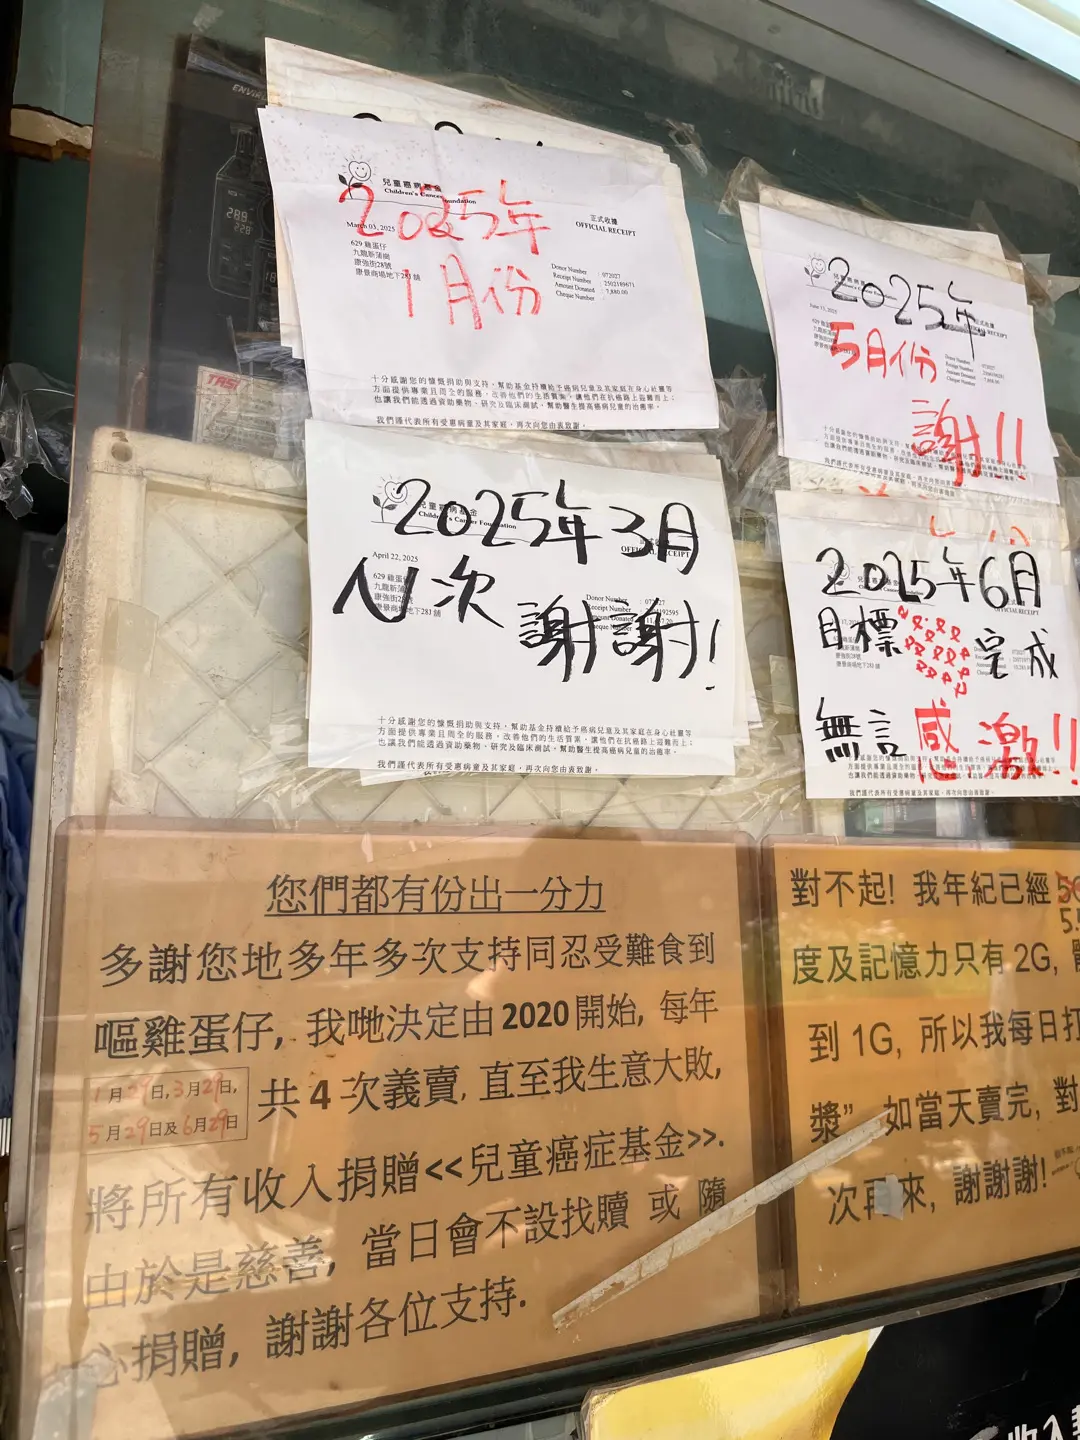 兒童癌病基金
Children's Cancer Foundation
2025年
1月份
正式收據
OFFICIAL RECEIPT
March 03, 2025
629 雞蛋仔
九龍新蒲崗
康強街28號
康景商場地下28J 舖
Donor Number : 072027
Receipt Number : 2502189671
Amount Donated : 7,880.00
Cheque Number :
十分感謝您的慷慨捐助與支持，幫助基金持續給予癌病兒童及其家庭在身心社靈等
方面提供專業且周全的服務，改善他們的生活質素，讓他們在抗癌路上迎難而上；
也讓我們能透過資助藥物、研究及臨床測試，幫助醫生提高癌病兒童的治癒率。
我們謹代表所有受惠病童及其家庭，再次向您由衷致謝。
2025年
5月份
謝!!
June 13, 2025
Donor Number
Receipt Number
Amount Donated
Cheque Number
兒童癌病基金
Children's Cancer Foundation
2025年3月
N次 謝謝!
OFFICIAL RECEIPT
April 22, 2025
629 雞蛋仔
九龍新蒲崗
康強街28號
康景商場地下28J 舖
Donor Number
Receipt Number
十分感謝您的慷慨捐助與支持，幫助基金持續給予癌病兒童及其家庭在身心社靈等
方面提供專業且周全的服務，改善他們的生活質素，讓他們在抗癌路上迎難而上；
也讓我們能透過資助藥物、研究及臨床測試，幫助醫生提高癌病兒童的治癒率。
我們謹代表所有受惠病童及其家庭，再次向您由衷致謝。
2025年6月
目標 完成
無言感激!!
我們謹代表所有受惠病童及其家庭，再次向您由衷致謝。
您們都有份出一分力
多謝您地多年多次支持同忍受難食到
嘔雞蛋仔, 我哋決定由 2020 開始, 每年
1月29日, 3月29日,
5月29日及6月29日
共 4 次義賣, 直至我生意大敗,
將所有收入捐贈<<兒童癌症基金>>.
由於是慈善, 當日會不設找贖 或 隨
心捐贈, 謝謝各位支持.
對不起! 我年紀已經
度及記憶力只有 2G,
到 1G, 所以我每日打
漿" 如當天賣完, 對
次再來, 謝謝謝!
收入